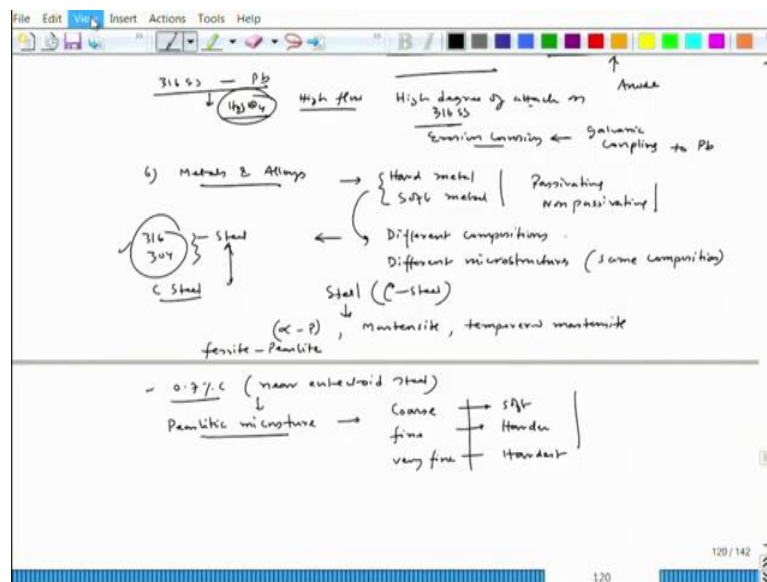 File Edit View Insert Actions Tools Help
B I
316 SS — Pb
↓ H2SO4 High flow High degree of attack on 316 SS
↑ Anode
Erosion Corrosion ← Galvanic Coupling to Pb
6) Metals & Alloys → { Hard metal | Passivating
Soft metal | Non passivating |
316 304 } — Steel ← Different compositions.
Different microstructures (same composition)
C Steel
Steel (C-Steel)
↓
(α-P), Martensite, tempered martensite
ferrite-Pearlite
- 0.7%.C (near eutectoid steel)
↓
Pearlitic micrsture → Coarse → Soft
fine → Harder
very fine Hardest
120 / 142
120